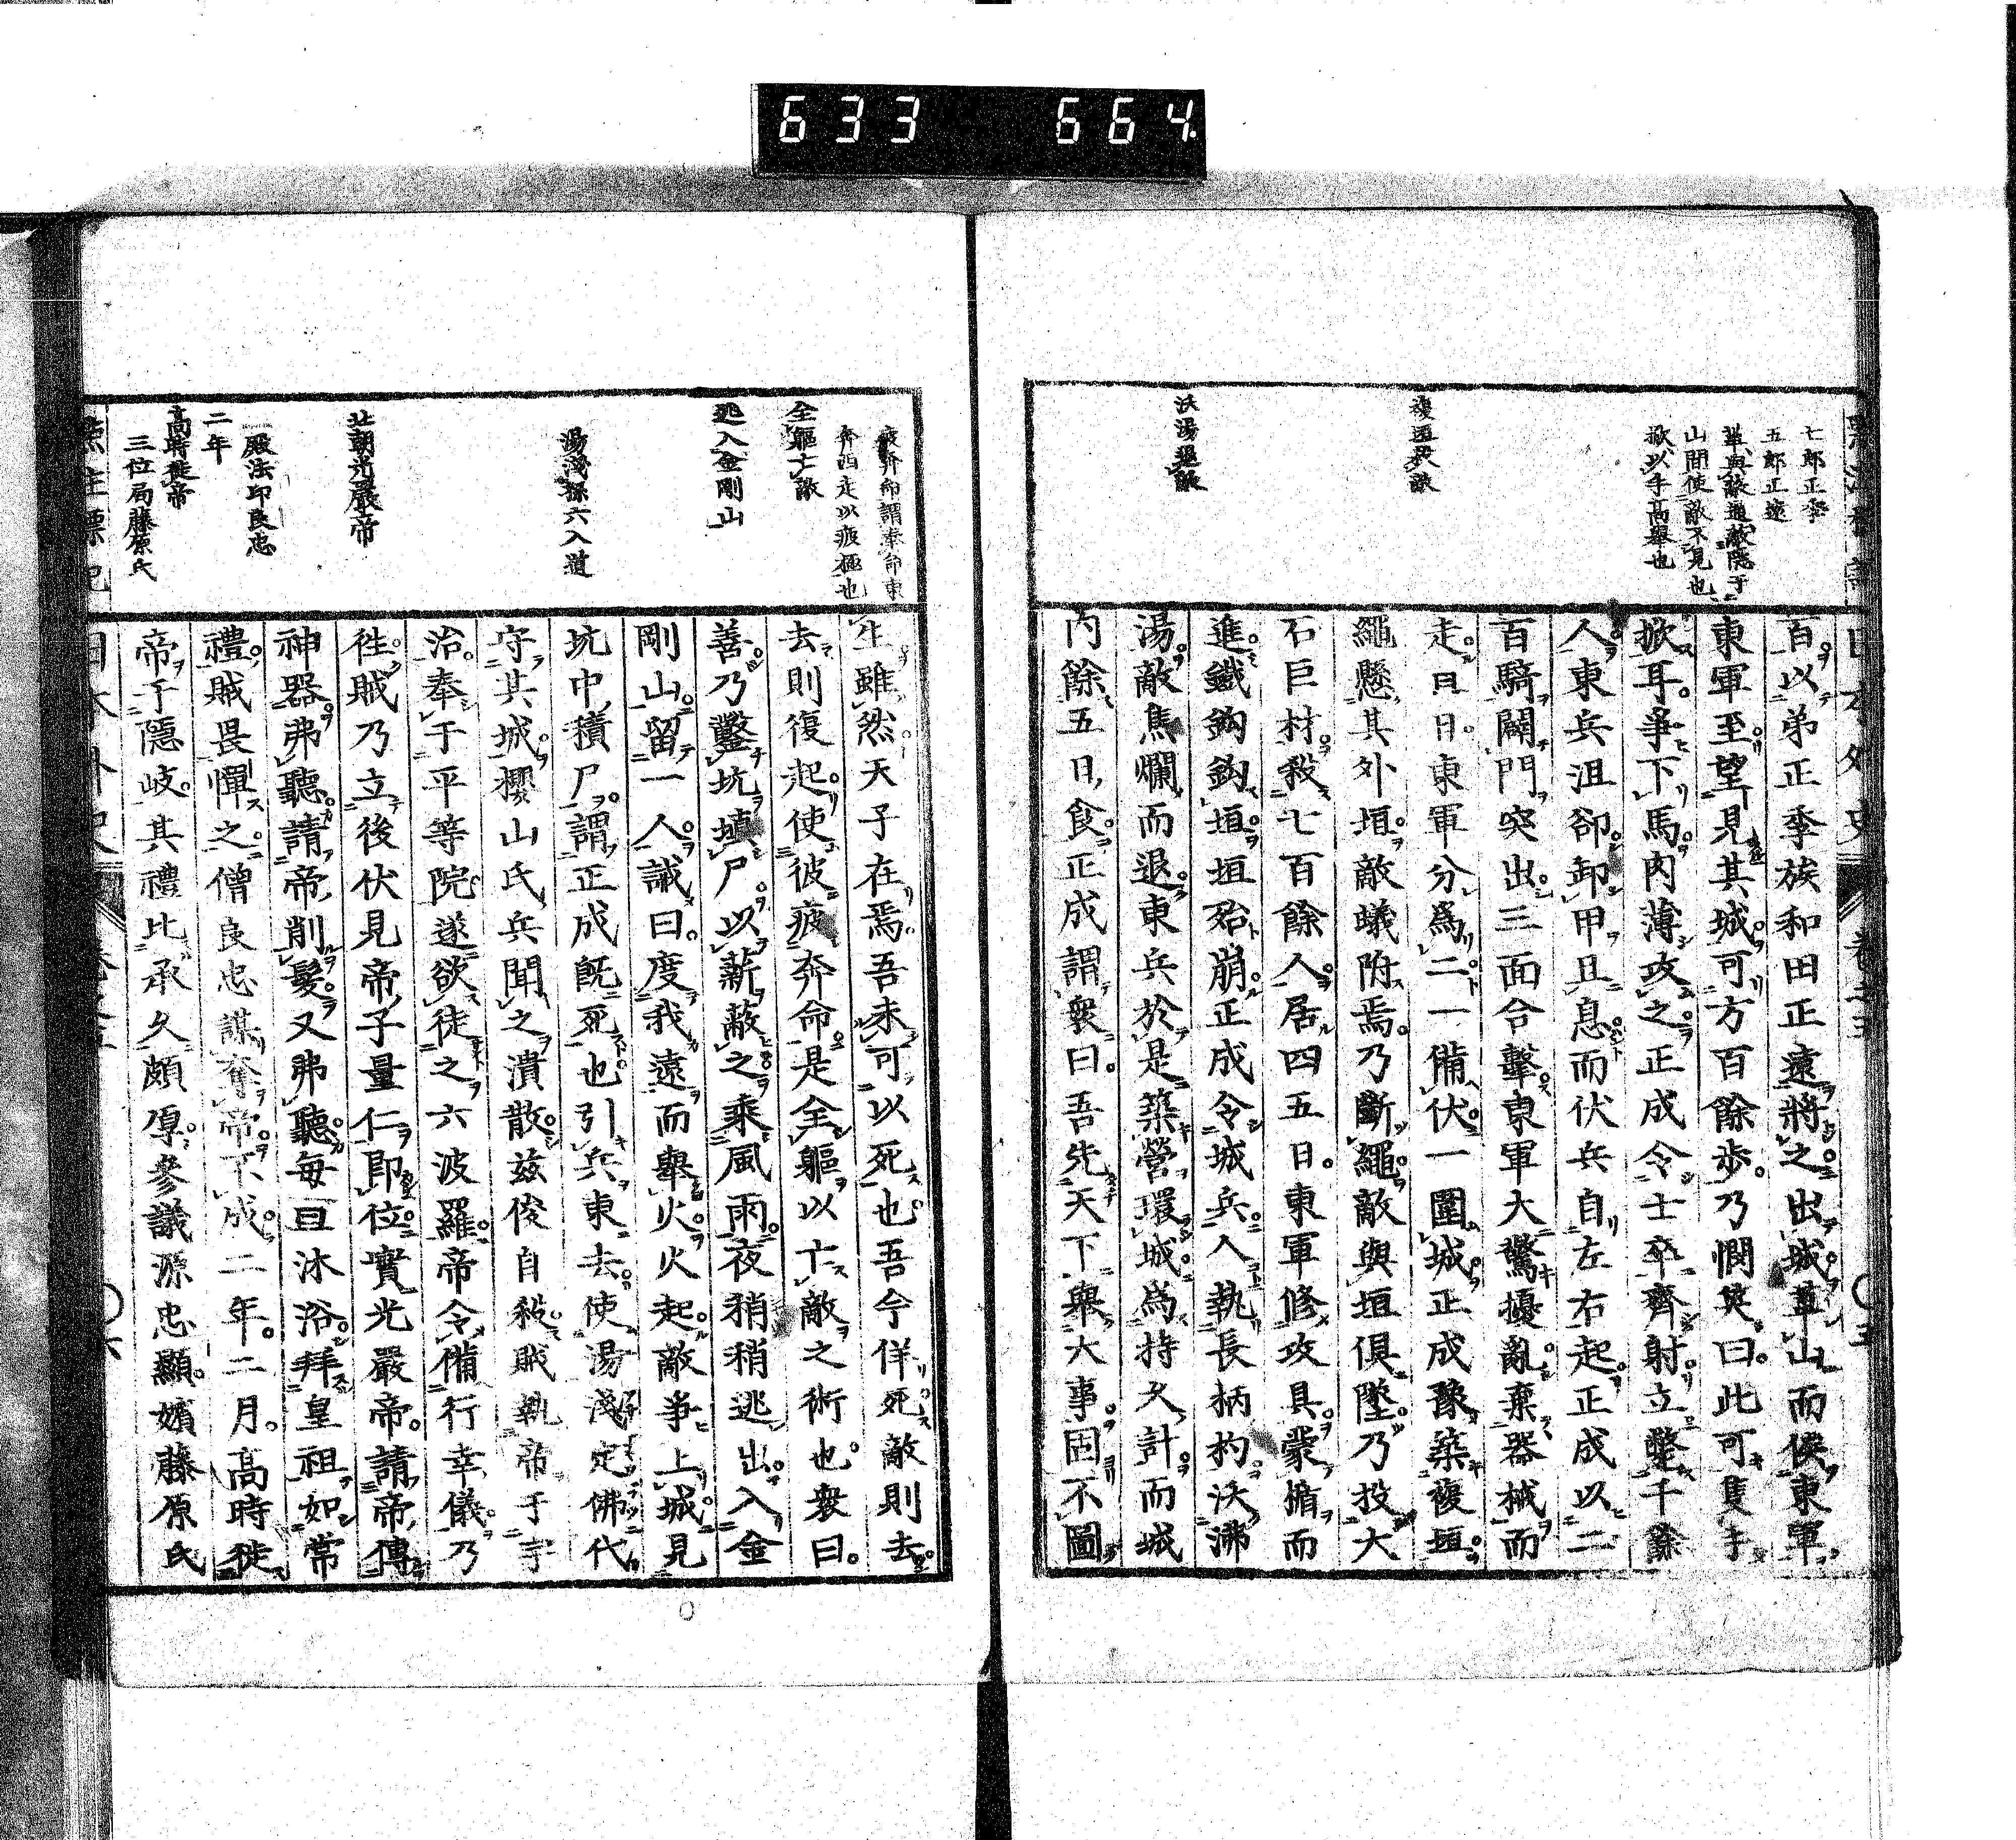 633 664
七郎正季
五郎正遠
萆與蔽通蔽隱于
山間使敵不見也
掀以手高舉也
複垣殺敵
沃湯退敵
百以弟正季族和田正遠將之出城萆山而候東軍
東軍至望見其城可方百餘步乃憫笑曰此可隻手
掀耳爭下馬肉薄攻之正成令士卒齊射立斃千餘
人東兵沮卻卸甲且息而伏兵自左右起正成以二
百騎闢門突出三面合擊東軍大驚擾亂棄器械而
走旦日東軍分為二一備伏一圍城正成豫築複垣
繩懸其外垣敵蟻附焉乃斷繩敵與垣俱墜乃投大
石巨材殺七百餘人居四五日東軍修攻具蒙楯而
進鐵鈎鈎垣垣殆崩正成令城兵人執長柄杓沃沸
湯敵焦爛而退東兵於是築營環城為持久計而城
內餘五日食正成謂衆曰吾先天下舉大事固不圖
疲奔命謂奉命東
奔西走以疲極也
全軀亡敵
逃入金剛山
湯淺孫六入道
北朝光嚴帝
殿法印良忠
二年
高時徙帝
三位局藤原氏
生雖然天子在焉吾未可以死也吾今佯死敵則去
去則復起使彼疲奔命是全軀以亡敵之術也衆曰
善乃鑿坑塡尸以薪蔽之乘風雨夜稍稍逃出入金
剛山留一人誡曰度我遠而舉火火起敵爭上城見
坑中積尸謂正成既死也引兵東去使湯淺定佛代
守其城櫻山氏兵聞之潰散茲俊自殺賊執帝于宇
治奉于平等院遂欲徒之六波羅帝令備行幸儀乃
徃賊乃立後伏見帝子量仁即位實光嚴帝請帝傳
神器弗聽請帝削髮又弗聽每旦沐浴拜皇祖如常
禮賊畏憚之僧良忠謀奪帝不成二年二月高時徙
帝于隱岐其禮比承久頗厚參議源忠顯嬪藤原氏